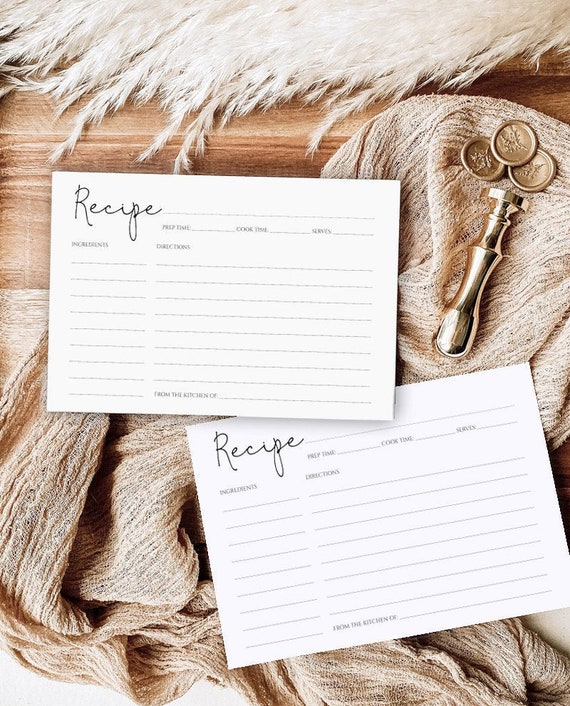 Recipe
PREP TIME: COOK TIME: SERVES:
INGREDIENTS DIRECTIONS:
FROM THE KITCHEN OF:
Recipe
PREP TIME: COOK TIME: SERVES:
INGREDIENTS DIRECTIONS:
FROM THE KITCHEN OF: